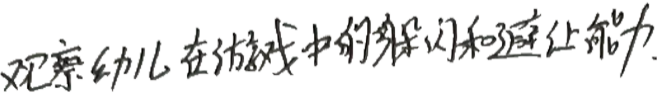 观察幼儿在游戏中的躲闪和避让能力.